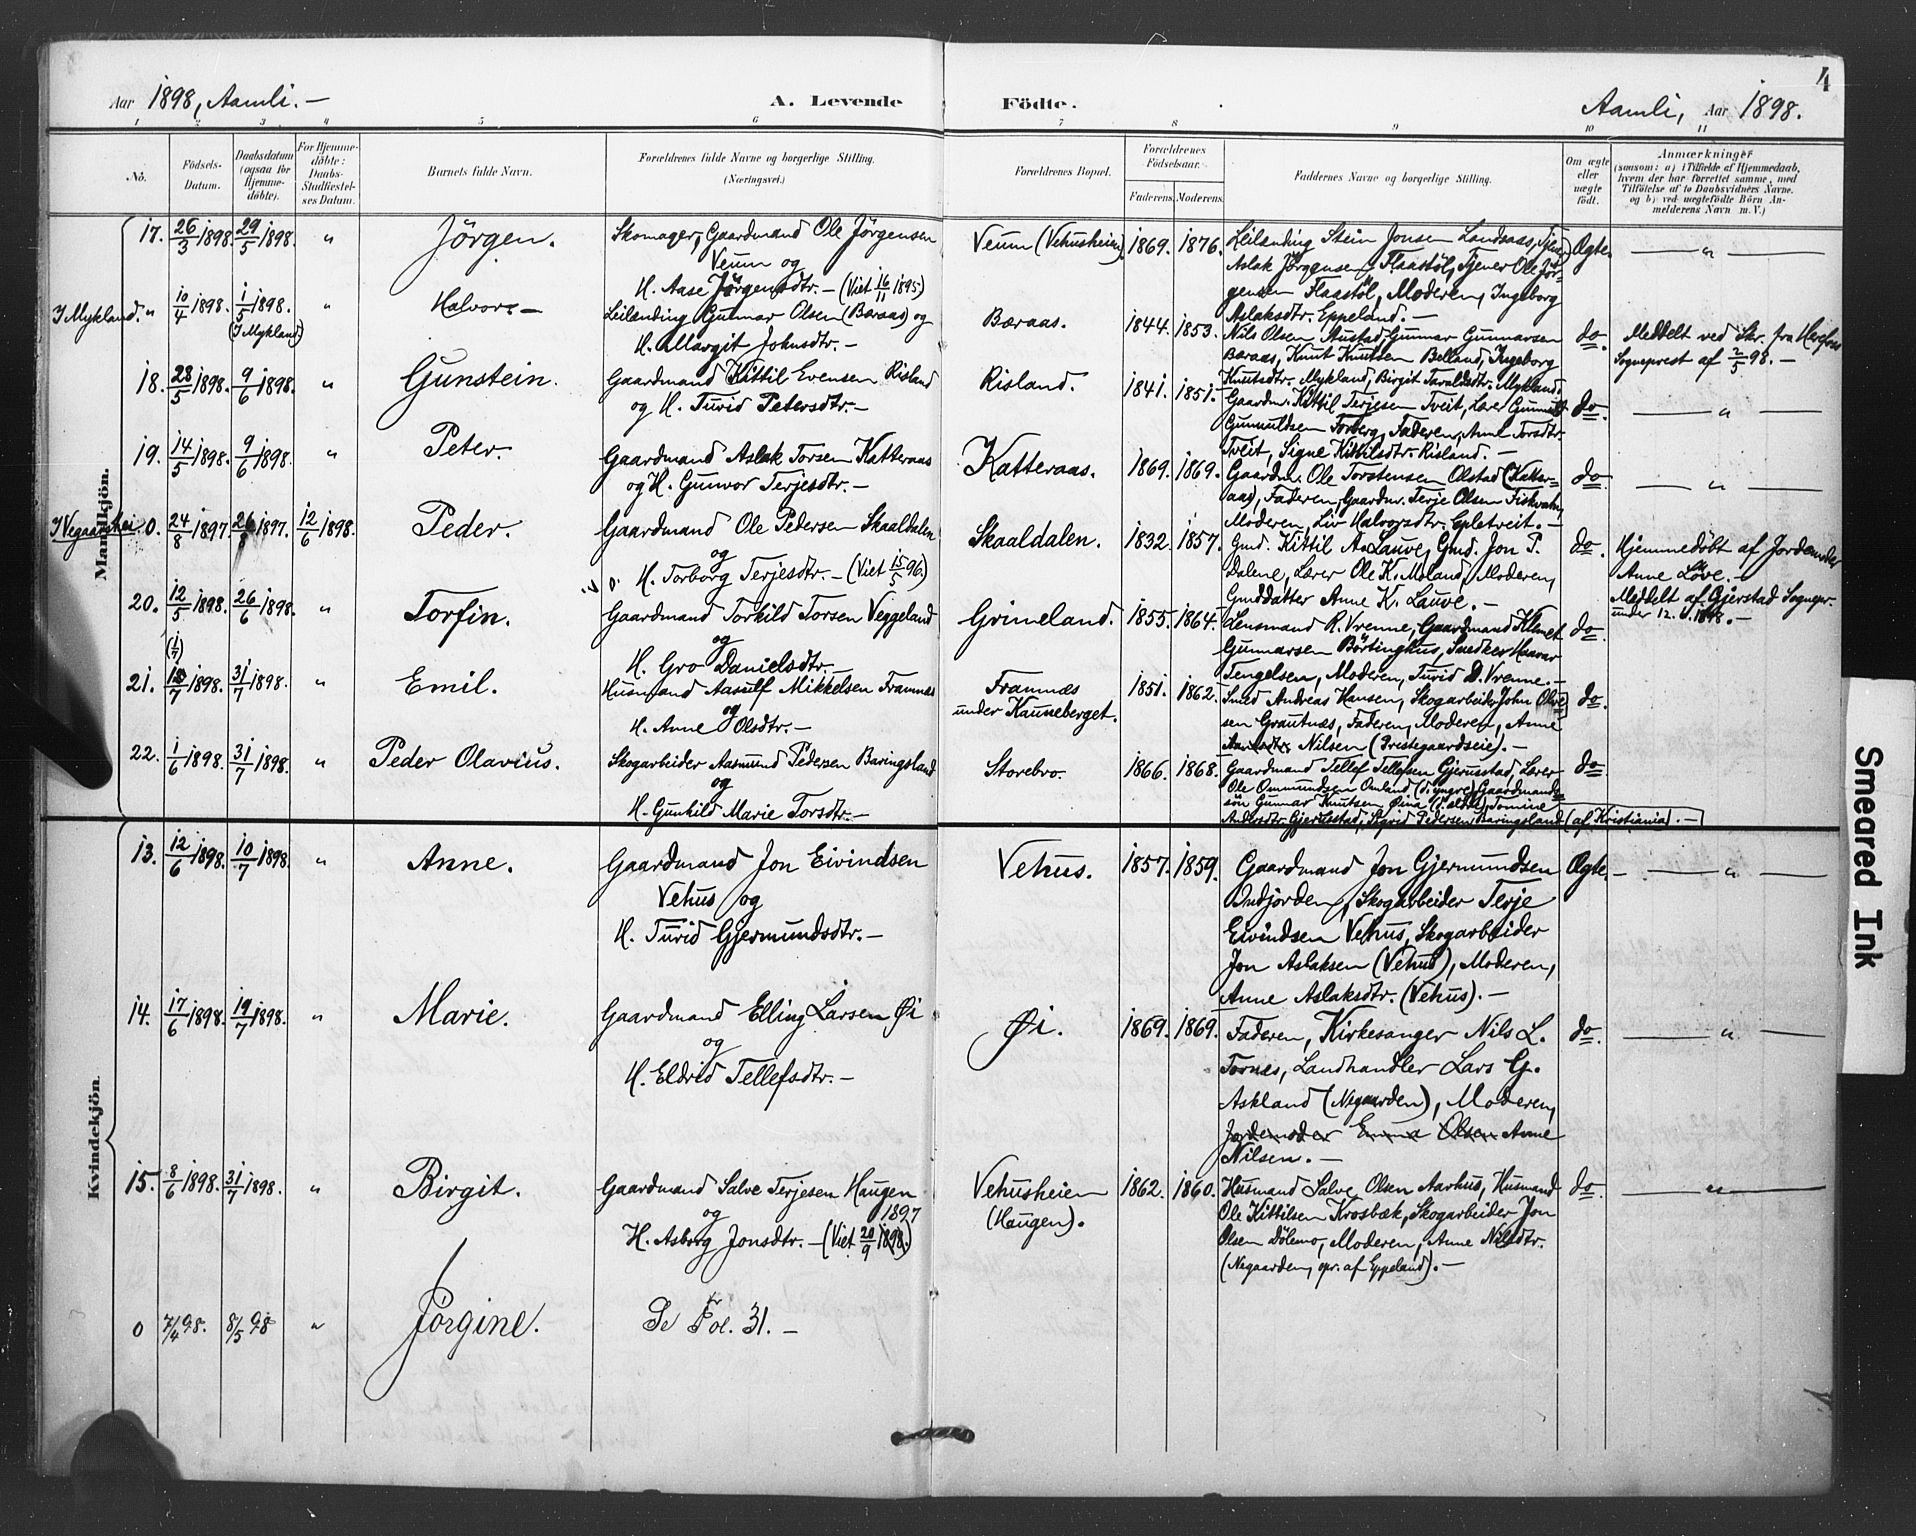 4
Aar 1898, Aamli. —
A. Levende Födte.
Aamli, Aar 1898.
1 2 3 4 5 6 7 8 9 10 11
No.
Födsels-Datum.
Daabsdatum (ogsaa for Hjemme-döbte).
For Hjemme-döbte: Daabs-Stadfæstel-ses Datum.
Barnets fulde Navn.
Forældrenes fulde Navne og borgerlige Stilling. (Næringsvei.)
Forældrenes Bopæl.
Forældrenes Födselsaar.
Faderens. Moderens.
Faddernes Navne og borgerlige Stilling.
Om ægte eller uægte födt.
Anmærkninger (saasom: a) i Tilfælde af Hjemmedaab, hvem der har forrettet samme, med Tilföielse af to Daabsvidners Navne, og b) ved uægtefödte Börn An-melderens Navn m. V.)
Mandkjön.
17. 26/3 1898. 29/5 1898. "
Jörgen.
Skomager, Gaardmand Ole Jörgensen
Veum og
H. Aase Jörgensdtr. — (Viet 16/11 1895)
Veum (Vehusheien)
1869. 1876.
Leilænding Stein Jonsen Landsaas,
Aslak Jörgensen Flaastöl, Tjener Ole Jör-
gensen Flaastöl, Moderen, Ingeborg
Aslaksdtr. Eppeland. —
Ægte. — " —
I Mykland. " 10/4 1898. 1/5 1898. (I Mykland) "
Halvor. —
Leilænding Gunnar Olsen (Bæraas) og
H. Margit Johnsdtr. —
Bæraas.
1844. 1853.
Nils Olsen Austad, Gunnar Gunnarsen
Bæraas, Knut Knutsen Belland, Ingeborg
Knutsdtr. Mykland, Birgit Taraldsdtr. Mykland.
do.
Meddelt ved Skr. fra
Sogneprest af 2/5 98. —
18. 28/5 1898. 9/6 1898. "
Gunstein.
Gaardmand Kittil Evensen Risland
og H. Turid Petersdtr. —
Risland.
1841. 1851.
Gaardmr. Kittil Terjesen Tveit, Lærer Gunnuld
Gunnuldsen Forberg, Faderen, Anne Torsdtr.
Tveit, Signe Kittilsdtr. Risland. —
do. — " —
19. 14/5 1898. 9/6 1898. "
Peter.
Gaardmand Aslak Torsen Katteraas
og H. Gunvor Terjesdtr. —
Katteraas.
1869. 1869.
Gaardmr. Ole Torstensen Olstad (Katter-
aas), Faderen, Gaardmr. Terje Olsen Fiskvatn,
Moderen, Liv Halvorsdtr. Epletveit. —
do. — " —
I Vegaarshei 0. 24/8 1897. 26/8 1897. 12/6 1898.
Peder.
Gaardmand Ole Pedersen Skaaldalen
og
H. Torborg Terjesdtr. — (Viet 15/5 96.)
Skaaldalen.
1832. 1857.
Gmd. Kittil A. Lauve, Gmd. Jon P.
Dalene, Lærer Ole K. Moland, Moderen,
Gmddatter Anne K. Lauve. —
do.
Hjemmedöbt af Jordemoder
Anne Löve. —
Meddelt af Gjerstad Sognepr.
under 12. 6. 1898. —
20. 12/5 1898. 26/6 1898. "
Torfin.
Gaardmand Torkild Torsen Veggeland
og
H. Gro Danielsdtr. —
Grimeland.
1855. 1864.
Lensmand R. Vrenne, Gaardmand Klemet
Gunnarsen Börtinghus, Snedker Haavar
Tengelsen, Moderen, Turid D. Vrenne. —
do.
(1/7)
21. 15/7 1898. 31/7 1898. "
Emil.
Husmand Aasulf Mikkelsen Framnæs
og
H. Anne Olsdtr. —
Framnæs
under Kauneberget.
1851. 1862.
Smed Andreas Hansen, Skogarbeider John Olav-
sen Grautnæs, Faderen, Moderen, Anne
Nilsen (Prestegaardseie). —
do.
22. 1/6 1898. 31/7 1898. "
Peder Olavius.
Skogarbeider Aasmund Pedersen Baringsland
og
H. Gunhild Marie Torsdtr. —
Storebro.
1866. 1868.
Gaardmand Tellef Tellefsen Gjerusstad, Lærer
Ole Ommundsen Omland (d. yngre), Gaardmands-
sön Gunnar Knutsen Öina (d. eldre), Tomine
Andersdtr. Gjerusstad, Sigrid Pedersen Baringsland (af Kristiania). —
do.
Kvindekjön.
13. 12/6 1898. 10/7 1898. "
Anne.
Gaardmand Jon Eivindsen
Vehus og
H. Turid Gjermundsdtr. —
Vehus.
1857. 1859.
Gaardmand Jon Gjermundsen
Indjorden, Skogarbeider Terje
Eivindsen Vehus, Skogarbeider
Jon Aslaksen (Vehus), Moderen,
Anne Aslaksdtr. (Vehus). —
Ægte. — " —
14. 17/6 1898. 19/7 1898. "
Marie.
Gaardmand Elling Larsen Øi
og
H. Eldrid Tellefsdtr. —
Øi.
1869. 1869.
Faderen, Kirkesanger Nils L.
Tornes, Landhandler Lars G.
Askland (Negaarden), Moderen,
Jordemoder Emma Olsen Anne
Nilsen. —
do. — " —
15. 8/6 1898. 31/7 1898. "
Birgit.
Gaardmand Salve Terjesen Haugen
og
1897
H. Asborg Jonsdtr. — (Viet 20/9 1898.)
Vehusheien
(Haugen).
1862. 1860.
Husmand Salve Olsen Aarhus, Husmand
Ole Kittilsen Krosbæk, Skogarbeider Jon
Olsen Dölemo, Moderen, Anne Nilsdtr.
(Negaarden, opr. af Eppeland). —
do. — " —
0 7/4 98. 8/5 98 "
Jörgine.
Se Fol. 31. —
Smeared Ink